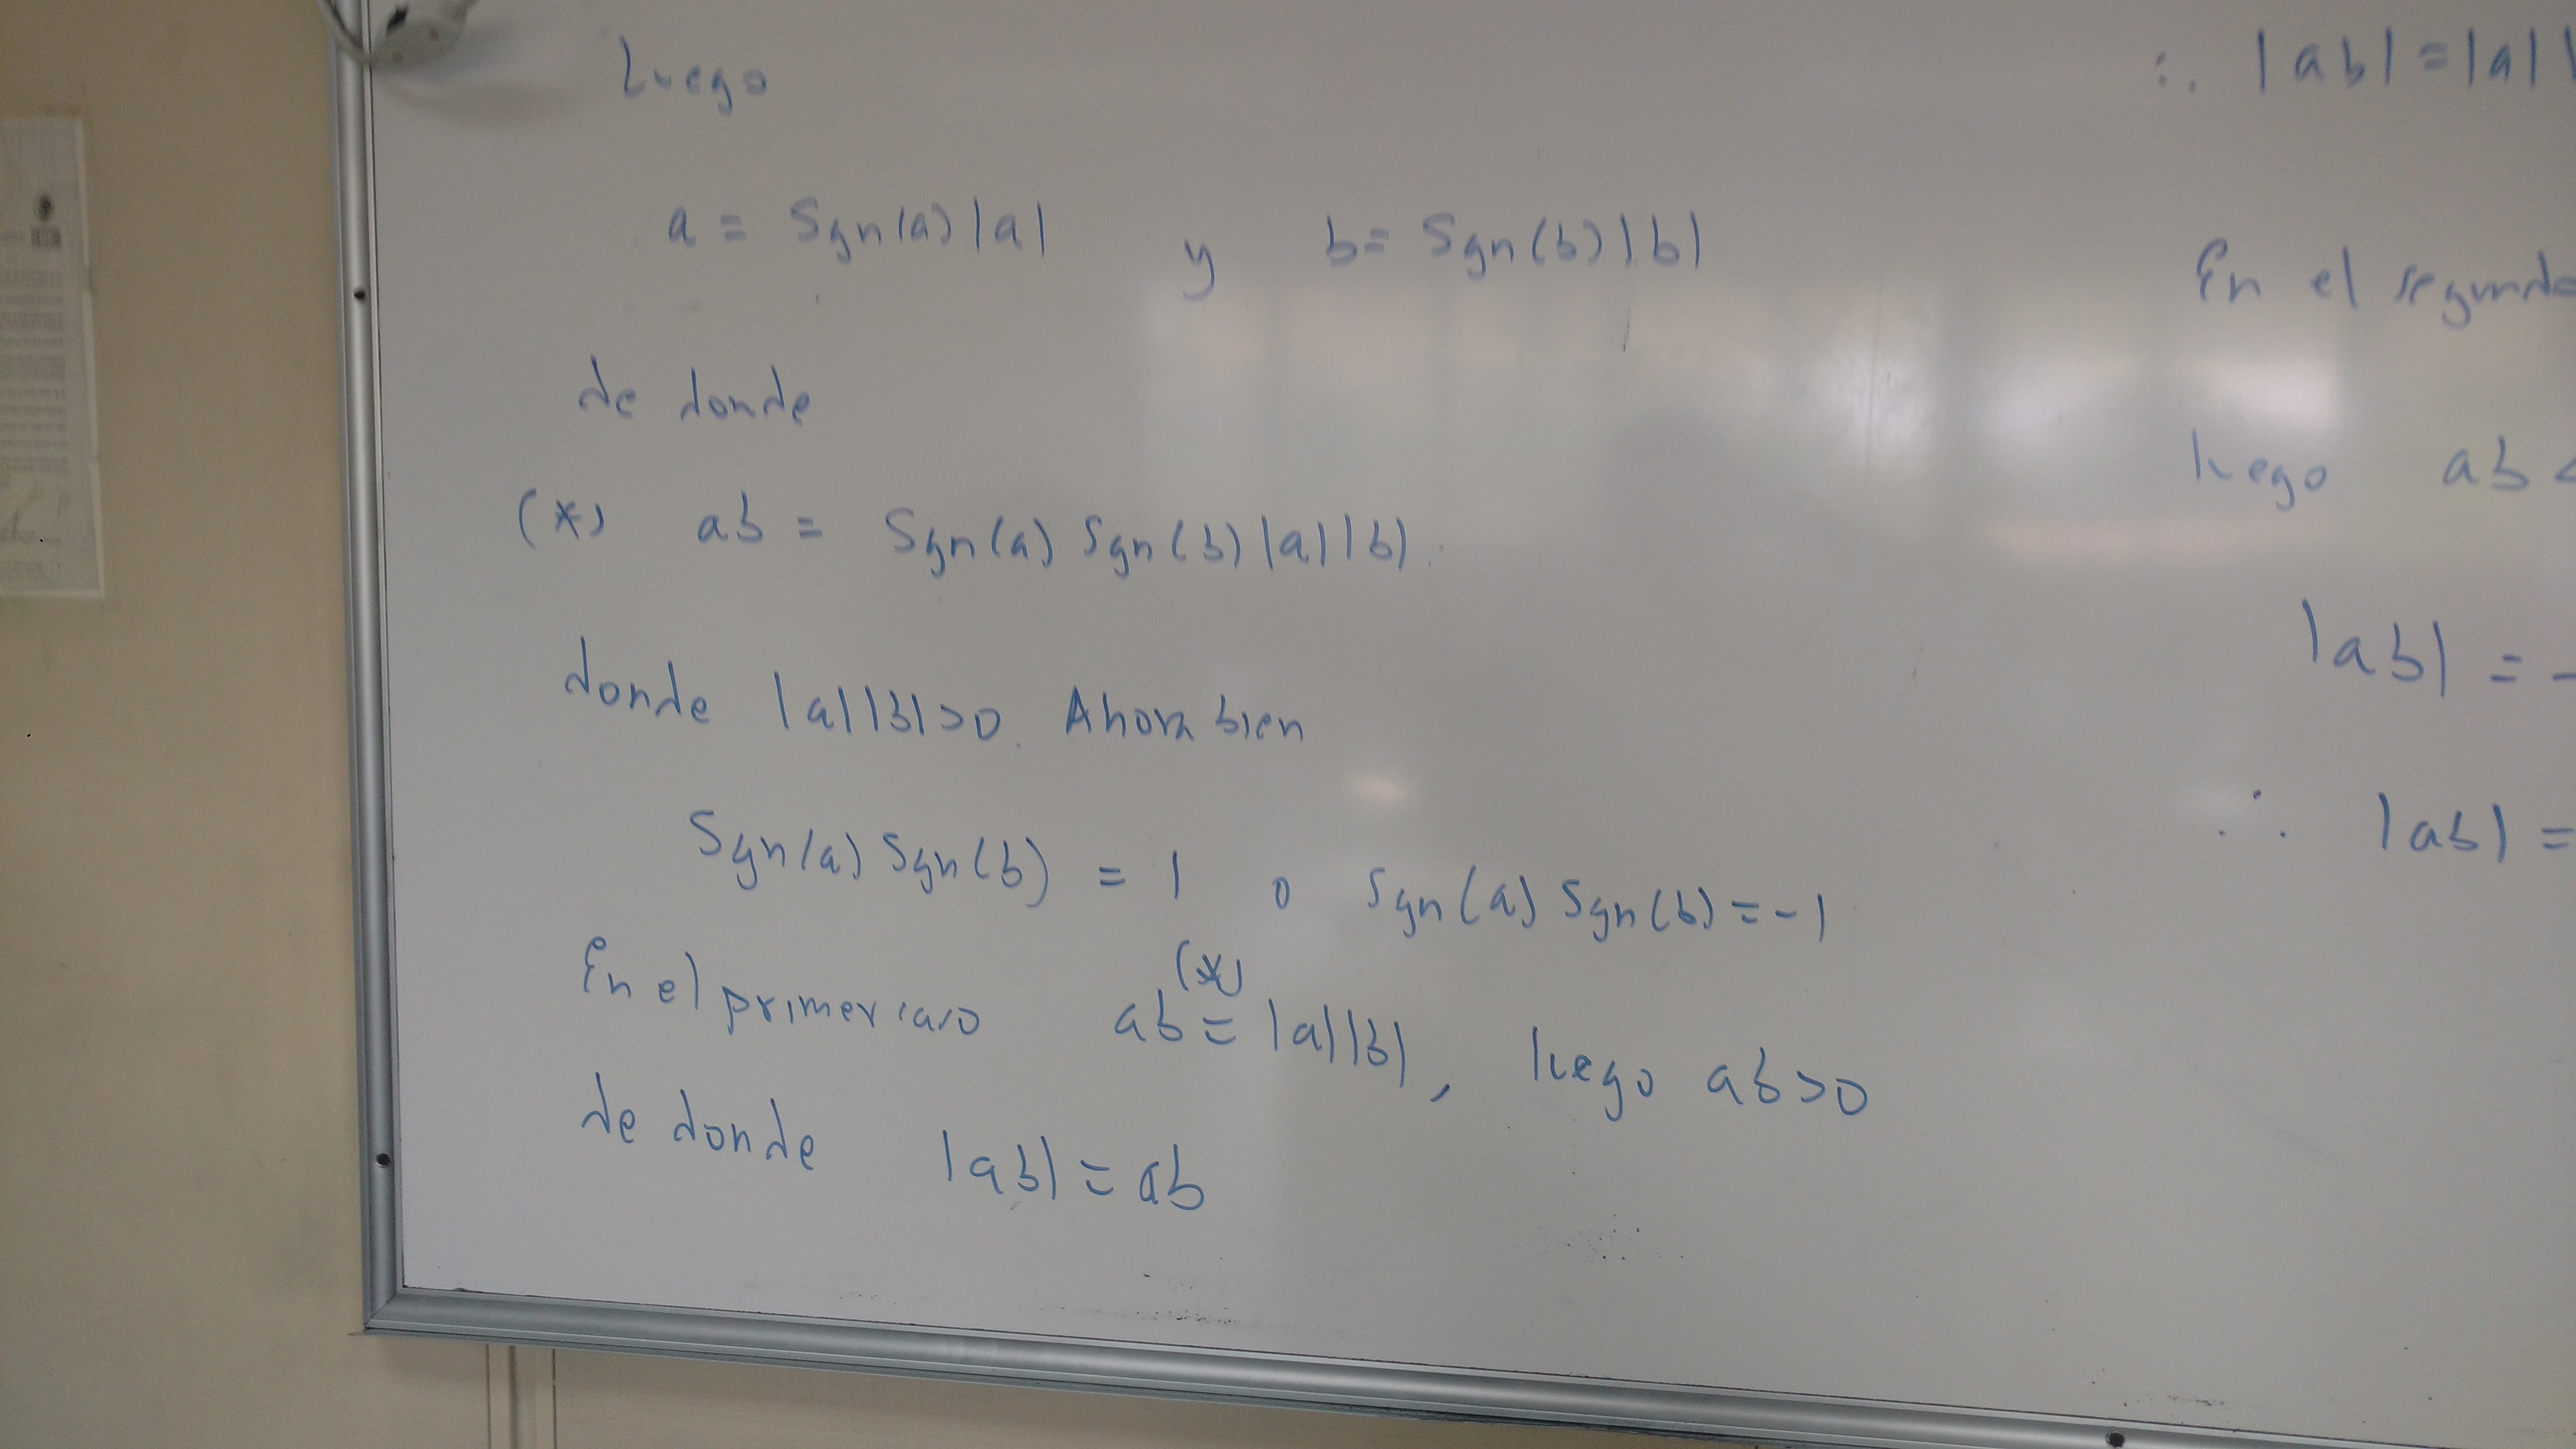 Luego
a = Sgn(a)|a| y b= Sgn(b)|b|
de donde
(*) ab = Sgn(a) Sgn(b)|a||b|.
donde |a||b|>0. Ahora bien
Sgn(a) Sgn(b) = 1 o Sgn(a) Sgn(b)=-1
En el primer caso ab (*)= |a||b|, luego ab>0
de donde |ab|=ab
∴ |ab|=|a||
En el segundo
luego ab<
|ab| = -
∴ |ab| =